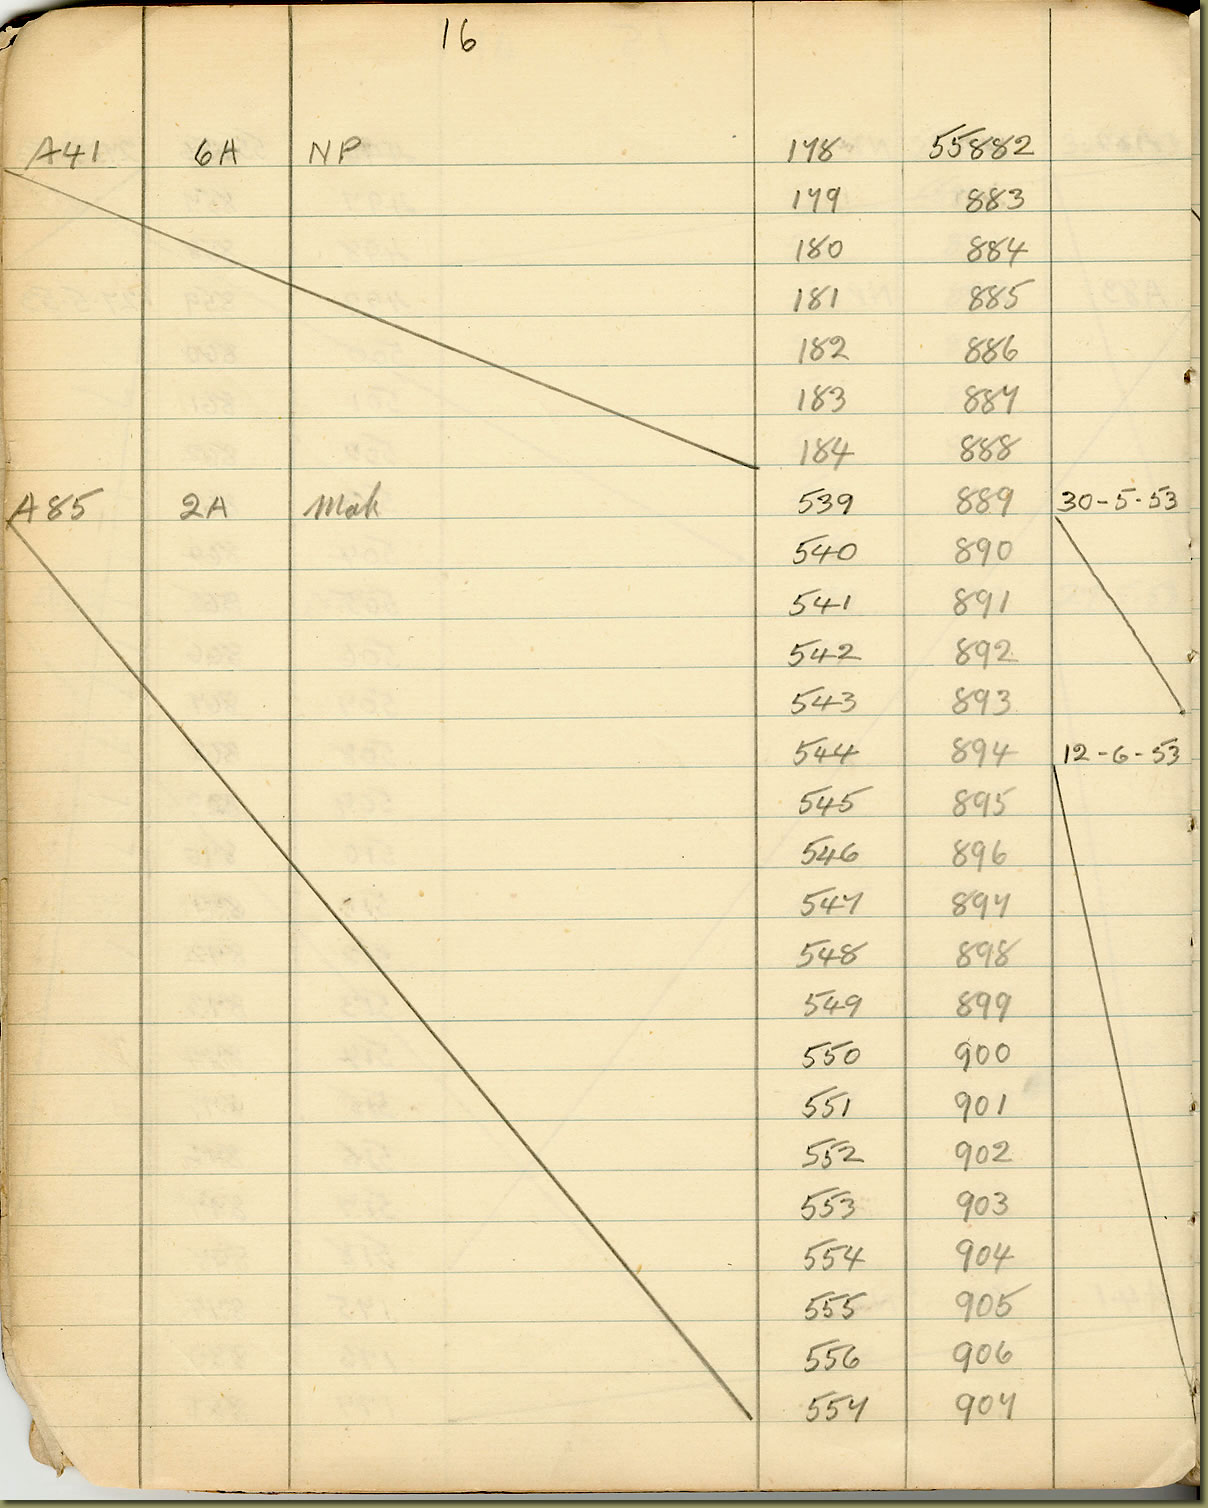 16
A41 6A NP 178 55882
179 883
180 884
181 885
182 886
183 887
184 888
A85 2A Mak 539 889 30-5-53
540 890
541 891
542 892
543 893
544 894 12-6-53
545 895
546 896
547 897
548 898
549 899
550 900
551 901
552 902
553 903
554 904
555 905
556 906
557 907